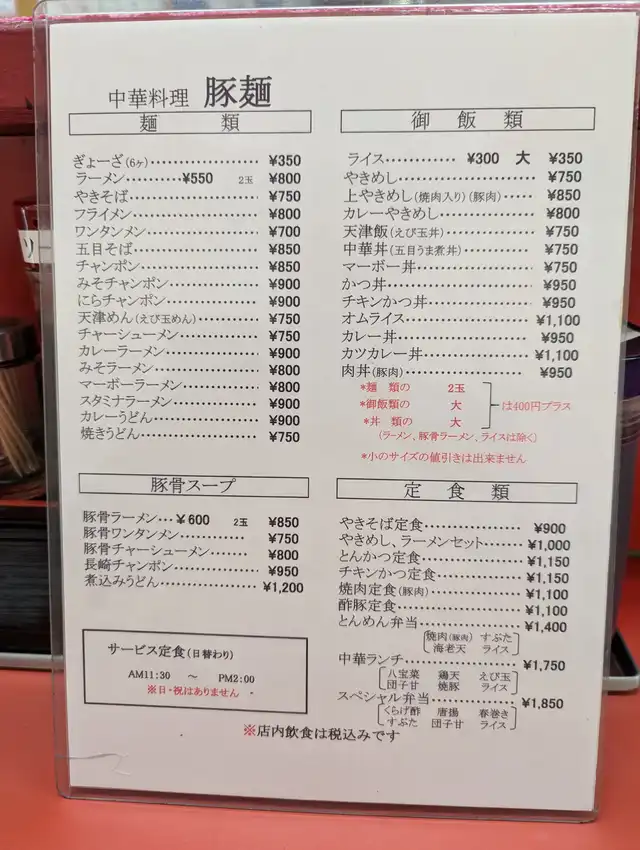 中華料理 豚麺
麺 類
ぎょーざ(6ヶ)……………… ¥350
ラーメン…………¥550 2玉 ¥800
やきそば……………… ¥750
フライメン……………… ¥800
ワンタンメン……………… ¥700
五目そば……………… ¥850
チャンポン……………… ¥850
みそチャンポン……………… ¥900
にらチャンポン……………… ¥900
天津めん(えび玉めん)……………… ¥750
チャーシューメン……………… ¥750
カレーラーメン……………… ¥900
みそラーメン……………… ¥800
マーボーラーメン……………… ¥800
スタミナラーメン……………… ¥900
カレーうどん……………… ¥900
焼きうどん……………… ¥750
豚骨スープ
豚骨ラーメン…¥600 2玉 ¥850
豚骨ワンタンメン………… ¥750
豚骨チャーシューメン……… ¥800
長崎チャンポン……………… ¥950
煮込みうどん……………… ¥1,200
サービス定食(日替わり)
AM11:30 ～ PM2:00
※日・祝はありません
御 飯 類
ライス………… ¥300 大 ¥350
やきめし……………… ¥750
上やきめし(焼肉入り)(豚肉)…… ¥850
カレーやきめし……………… ¥800
天津飯(えび玉丼)……………… ¥750
中華丼(五目うま煮丼)………… ¥750
マーボー丼……………… ¥750
かつ丼……………… ¥950
チキンかつ丼……………… ¥950
オムライス……………… ¥1,100
カレー丼……………… ¥950
カツカレー丼……………… ¥1,100
肉丼(豚肉)……………… ¥950
*麺 類の 2玉
*御飯類の 大 は400円プラス
*丼 類の 大
(ラーメン、豚骨ラーメン、ライスは除く)
*小のサイズの値引きは出来ません
定 食 類
やきそば定食……………… ¥900
やきめし、ラーメンセット……… ¥1,000
とんかつ定食……………… ¥1,150
チキンかつ定食……………… ¥1,150
焼肉定食(豚肉)……………… ¥1,100
酢豚定食……………… ¥1,100
とんめん弁当……………… ¥1,400
焼肉(豚肉) すぶた
海老天 ライス
中華ランチ……………… ¥1,750
八宝菜 鶏天 えび玉
団子甘 焼豚 ライス
スペシャル弁当……………… ¥1,850
くらげ酢 唐揚 春巻き
すぶた 団子甘 ライス
※店内飲食は税込みです